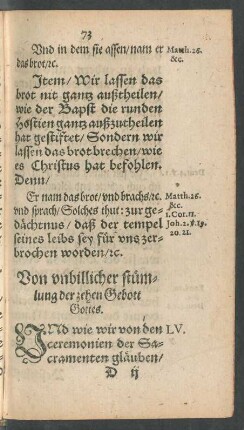 73
Vnd in dem sie assen/ nam er Matth. 26.
das brot/ ꝛc. &c.
Jtem/ Wir lassen das
brot nit gantz außtheilen/
wie der Bapst die runden
Hostien gantz außzutheilen
hat gestifftet/ Sondern wir
lassen das brot brechen/ wie
es Christus hat befohlen.
Denn/
Er nam das brot/ vnd brachs/ ꝛc. Matth. 26.
vnd sprach/ Solches thut: zur ge- &c.
dächtnus/ daß der tempel 1. Cor. 11.
seines leibs sey für vns zer- Joh. 2. v. 19.
brochen worden/ ꝛc. 20. 21.
Von vnbillicher stüm-
lung der zehen Gebott
Gottes.
VNd wie wir von den LV.
ceremonien der Sa-
cramenten gläuben/
D ij